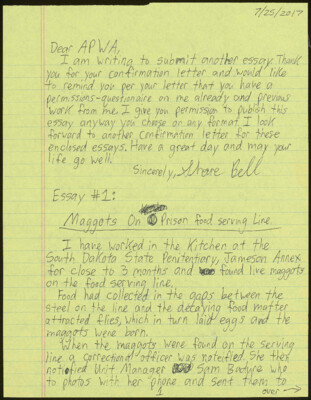 7/25/2017
Dear APWA,
I am writing to submit another essay. Thank
you for your confirmation letter and would like
to remind you per your letter that you have a
permissions-questionaire on me already and previous
work from me. I give you permission to publish this
essay anyway you choose or any format. I look
forward to another confirmation letter for these
enclosed essays. Have a great day and may your
life go well.
Sincerely, Shane Bell
Essay #1:
Maggots On Prison food serving Line.
I have worked in the Kitchen at the
South Dakota State Penitentiary, Jameson Annex
for close to 3 months and found live maggots
on the food serving line.
Food had collected in the gaps between the
steel on the line and the decaying food matter
attracted flies, which in turn laid eggs and the
maggots were born.
When the maggots were found on the serving
line a correctional officer was notified. She then
notified Unit Manager Sam Badure who
to photos with her phone and sent them to
1
over →